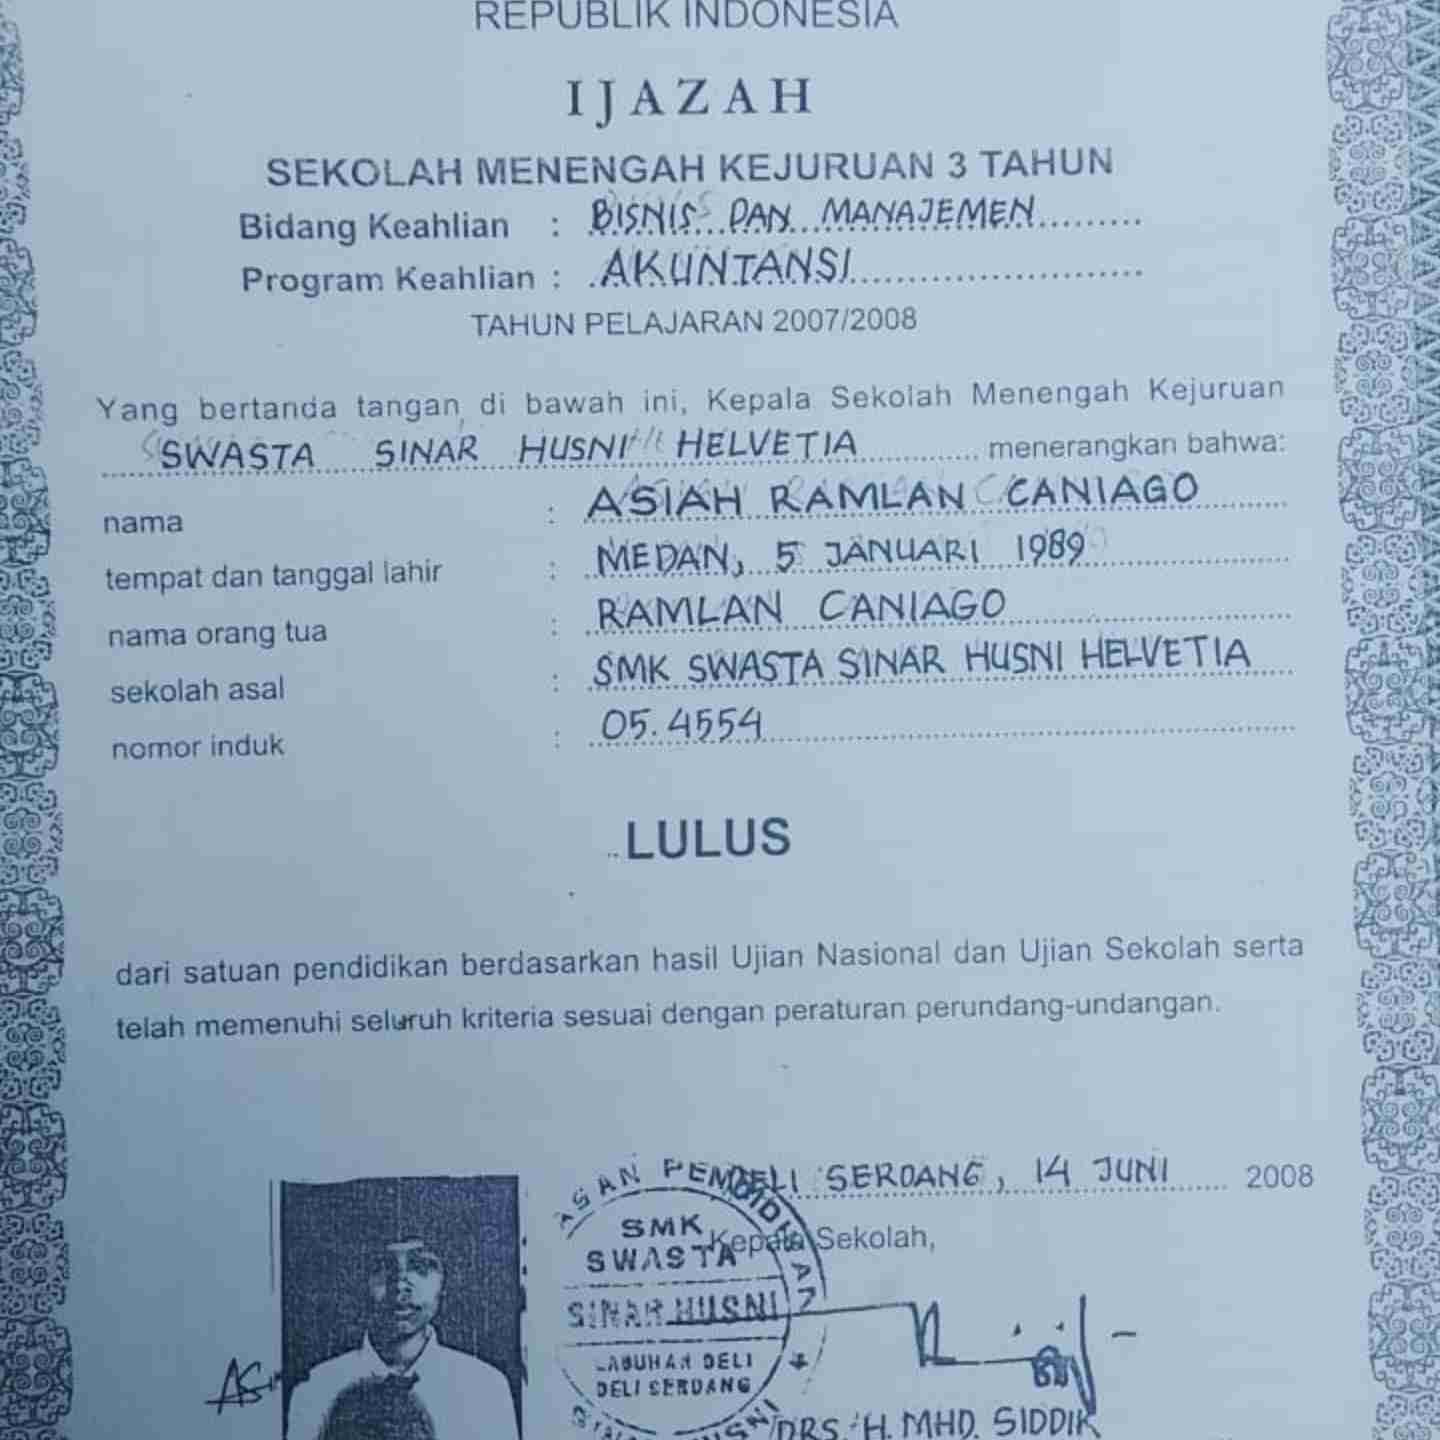 REPUBLIK INDONESIA
IJAZAH
SEKOLAH MENENGAH KEJURUAN 3 TAHUN
Bidang Keahlian : BISNIS DAN MANAJEMEN
Program Keahlian : AKUNTANSI
TAHUN PELAJARAN 2007/2008
Yang bertanda tangan di bawah ini, Kepala Sekolah Menengah Kejuruan
SWASTA SINAR HUSNI HELVETIA menerangkan bahwa:
nama : ASIAH RAMLAN CANIAGO
tempat dan tanggal lahir : MEDAN, 5 JANUARI 1989
nama orang tua : RAMLAN CANIAGO
sekolah asal : SMK SWASTA SINAR HUSNI HELVETIA
nomor induk : 05.4554
LULUS
dari satuan pendidikan berdasarkan hasil Ujian Nasional dan Ujian Sekolah serta
telah memenuhi seluruh kriteria sesuai dengan peraturan perundang-undangan.
DELI SERDANG, 14 JUNI 2008
Kepala Sekolah,
SMK
SWASTA
SINAR HUSNI
LABUHAN DELI
DELI SERDANG
DRS. H. MHD. SIDDIK